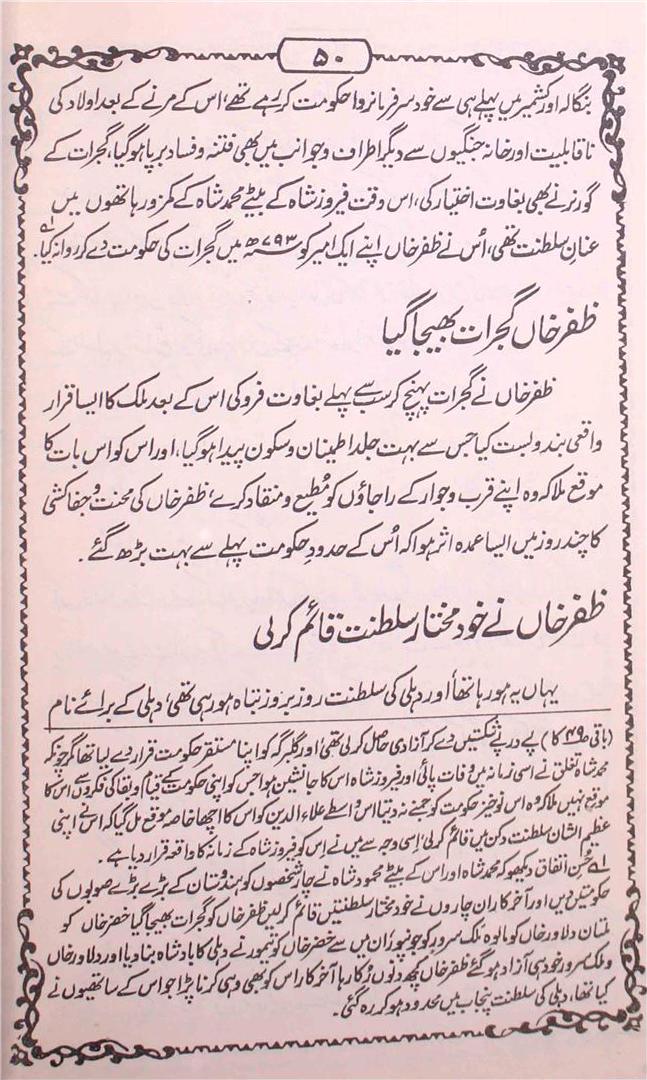 ۵۰
بنگالہ اور کشمیر میں پہلے ہی سے خود سر فرمانروا حکومت کر رہے تھے، اس کے مرنے کے بعد اولاد کی
ناقابلیت اور خانہ جنگیوں سے دیگر اطراف و جوانب میں بھی فتنہ و فساد برپا ہو گیا، گجرات کے
گورنر نے بھی بغاوت اختیار کی، اس وقت فیروز شاہ کے بیٹے محمد شاہ کے کمزور ہاتھوں میں
عنانِ سلطنت تھی، اُس نے ظفر خاں اپنے ایک امیر کو ۷۹۳ھ میں گجرات کی حکومت دے کر روانہ کیا۔ لے
ظفر خاں گجرات بھیجا گیا
ظفر خاں نے گجرات پہنچ کر سب سے پہلے بغاوت فرو کی اس کے بعد ملک کا ایسا قرار
واقعی بندوبست کیا جس سے بہت جلد اطمینان و سکون پیدا ہو گیا، اور اس کو اس بات کا
موقع ملا کہ وہ اپنے قرب و جوار کے راجاؤں کو مُطیع و منقاد کرے، ظفر خاں کی محنت و جفاکشی
کا چند روز میں ایسا عمدہ اثر ہوا کہ اُس کے حدودِ حکومت پہلے سے بہت بڑھ گئے۔
ظفر خاں نے خود مختار سلطنت قائم کر لی
یہاں یہ ہو رہا تھا، اور دہلی کی سلطنت روز بروز تباہ ہو رہی تھی، دہلی کے برائے نام
(باقی ص۴۹ کا) پے در پے شکستیں دے کر آزادی حاصل کر لی تھی اور گلبرگہ کو اپنا مستقر حکومت قرار دے لیا تھا گرچونکہ
محمد شاہ تغلق نے اسی زمانہ میں وفات پائی اور فیروز شاہ اس کا جانشین ہوا جس کو اپنی حکومت کے قیام و بقا کی فکروں سے اس کا
موقع نہیں ملا کہ وہ اس نوخیز حکومت کو جمنے نہ دیتا اس واسطے علاء الدین کو اس کا اچھا خاصہ موقع مل گیا کہ اس نے اپنی
عظیم الشان سلطنت دکن میں قائم کر لی، اِسی وجہ سے میں نے اِس کو فیروز شاہ کے زمانہ کا واقعہ قرار دیا ہے۔
لے حُسنِ اتفاق دیکھو کہ محمد شاہ اور اس کے بیٹے محمود شاہ نے چار شخصوں کو ہندوستان کے بڑے بڑے صوبوں کی
حکومتیں دیں اور آخر کار ان چاروں نے خود مختار سلطنتیں قائم کر لیں ظفر خاں کو گجرات بھیجا گیا خضر خاں کو
ملتان دلاور خاں کو مالوہ ملک سرور کو جونپور، اُن میں سے خضر خاں کو تیمور نے دہلی کا بادشاہ بنا دیا اور دلاور خاں
و ملک سرور خود ہی آزاد ہو گئے ظفر خاں کچھ دنوں رُکا رہا آخر کار اس کو بھی وہی کرنا پڑا جو اس کے ساتھیوں نے
کیا تھا، دہلی کی سلطنت پنجاب میں محدود ہو کر رہ گئی۔